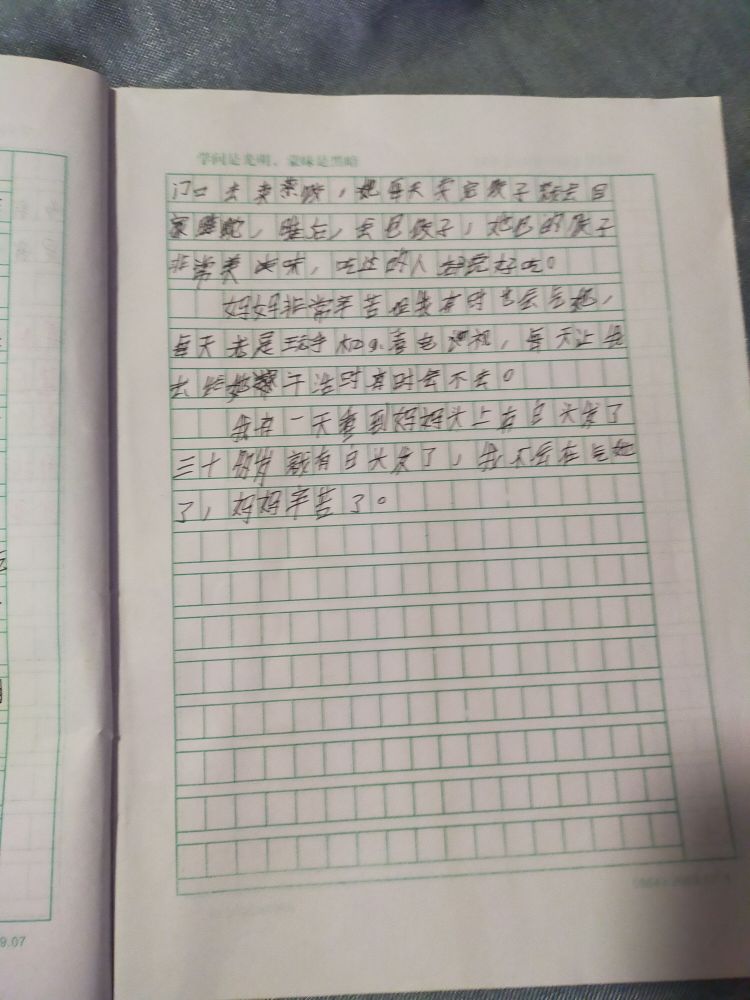 学问是光明，蒙昧是黑暗
门口去卖菜饺，她每天卖完饺子就去回
家睡，睡，去包饺子，她包的饺子
非常美味，吃过的人都说好吃。
妈妈非常辛苦但我有时也会气她，
每天老是玩手机看电视，每天让我
去干活时有时会不去。
我有一天看到妈妈头上有白头发了
三十岁就有白头发了，我不会在气她
了，妈妈辛苦了。
9.07